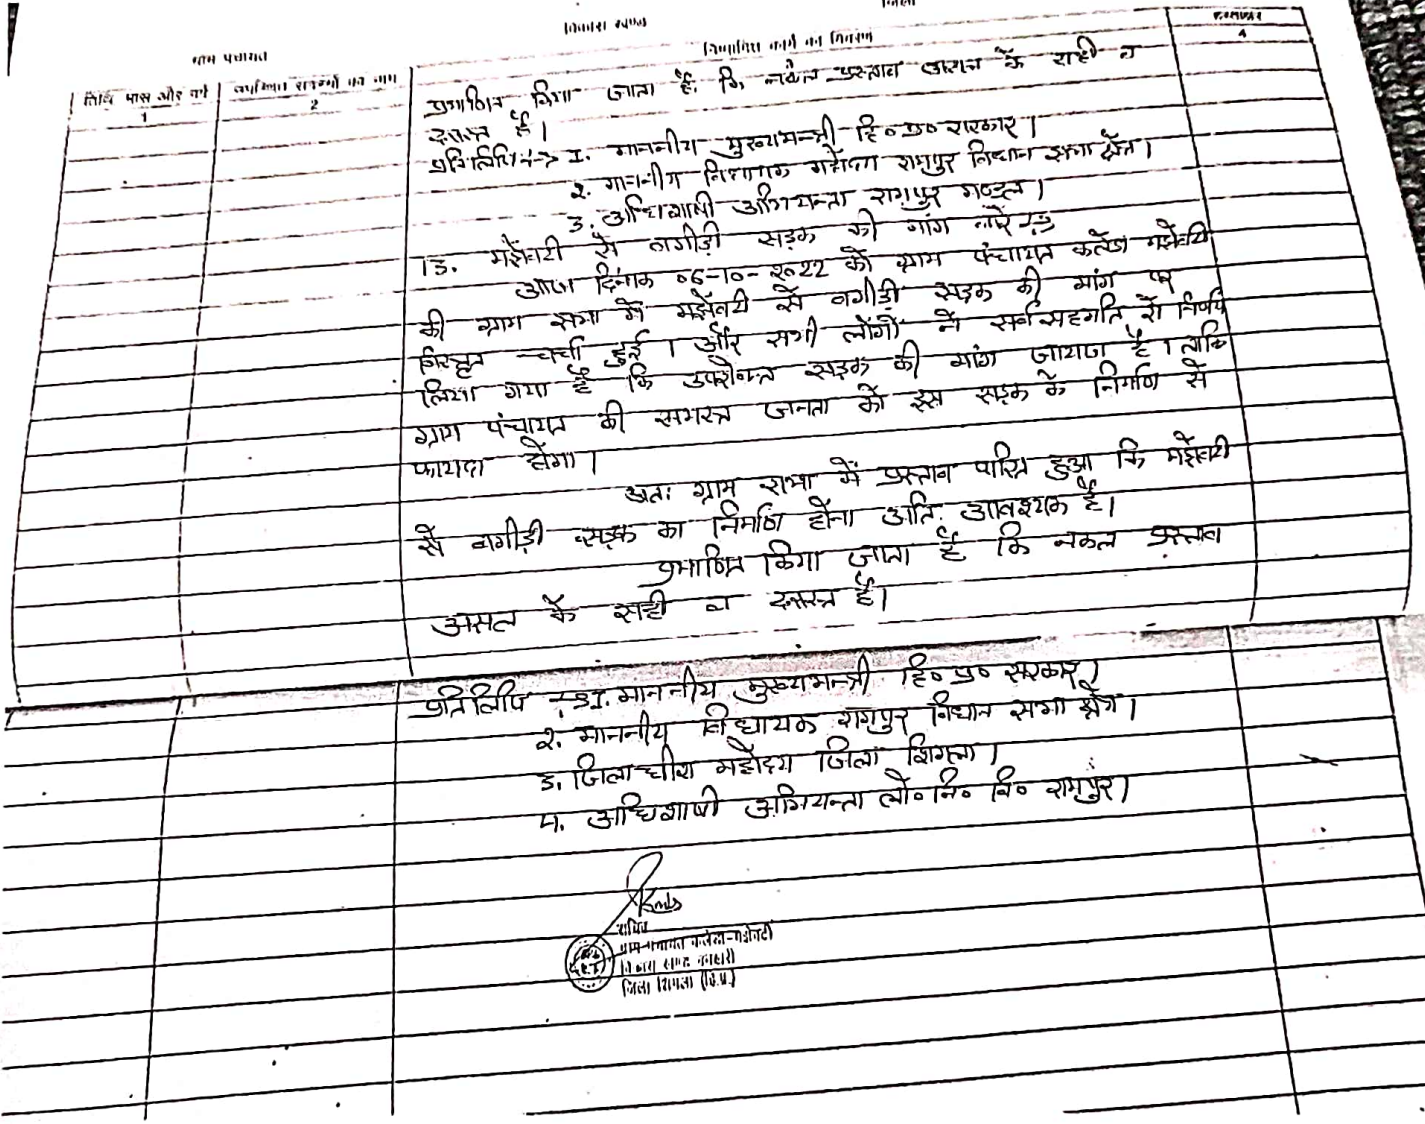 विकास खण्ड
जिला
ग्राम पंचायत
तिथि मास और वर्ष
1
उपस्थित सदस्यों का नाम
2
निर्धारित कार्य का विवरण
4
प्रमाणित किया जाता है कि नकल प्रस्ताव असल के सही व
दुरुस्त है।
प्रतिलिपि:-> I. माननीय मुख्यमन्त्री हि० प्र० सरकार।
2. माननीय विधायक महोदय रामपुर विधान सभा क्षेत्र।
3. अधिशाषी अभियन्ता रामपुर मण्डल।
13. मझेवटी से बागीड़ी सड़क की मांग बारे
आज दिनांक 06-10-2022 को ग्राम पंचायत कलेडा मझेवटी
की ग्राम सभा में मझेवटी से बागीड़ी सड़क की मांग पर
विस्तृत चर्चा हुई। और सभी लोगों ने सर्व सहमति से निर्णय
लिया गया है कि उपरोक्त सड़क की मांग जायज है। ताकि
ग्राम पंचायत की समस्त जनता को इस सड़क के निर्माण से
फायदा होगा।
अतः ग्राम सभा में प्रस्ताव पारित हुआ कि मझेवटी
से बागीड़ी सड़क का निर्माण होना अति आवश्यक है।
प्रमाणित किया जाता है कि नकल प्रस्ताव
असल के सही व दुरुस्त है।
प्रतिलिपि I. माननीय मुख्यमन्त्री हि० प्र० सरकार।
2. माननीय विधायक रामपुर विधान सभा क्षेत्र।
3. जिलाधीश महोदय जिला शिमला।
4. अधिशाषी अभियन्ता लो० नि० वि० रामपुर।
सचिव
ग्राम पंचायत कलेडा-मझेवटी
विकास खण्ड ननखरी
जिला शिमला (हि.प्र.)